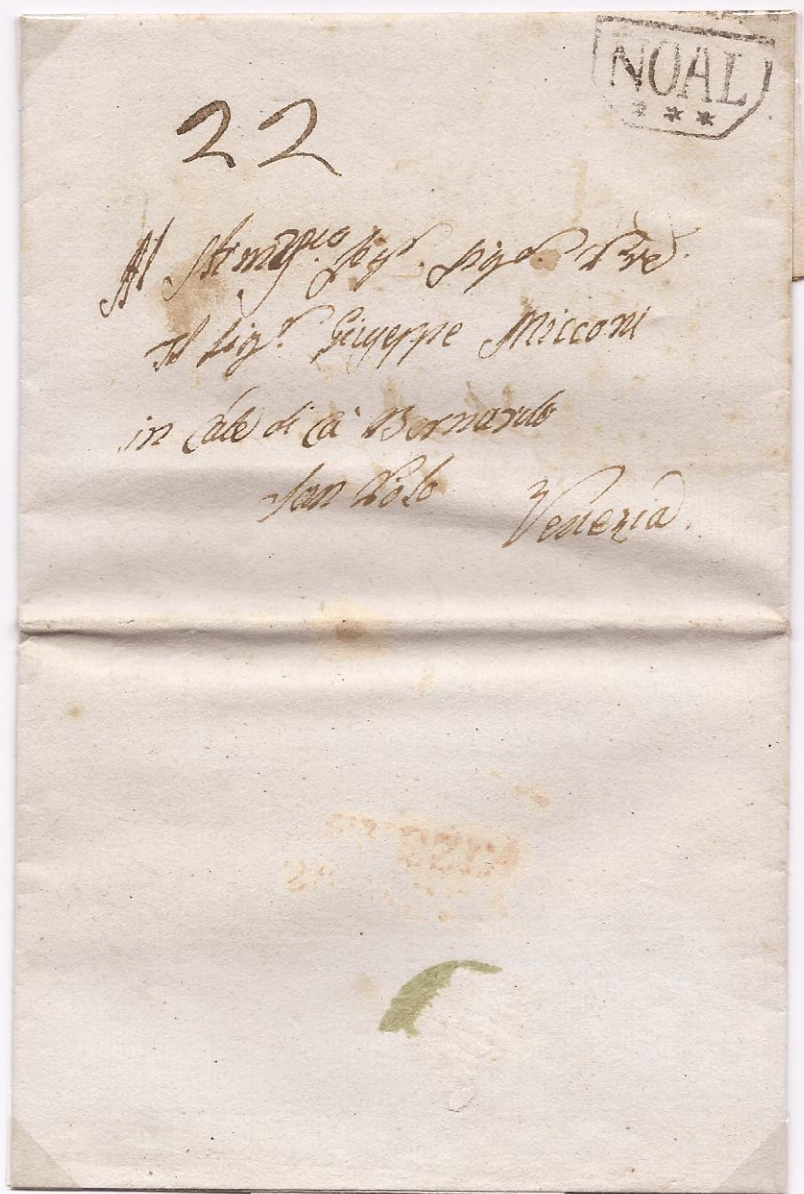 NOAL
***
22
Al Stimmo Sigr. Sigr. Pre.
Il Sigr. Giuseppe Micconi
in Cale di Cà Bernardo
San Polo Venezia.